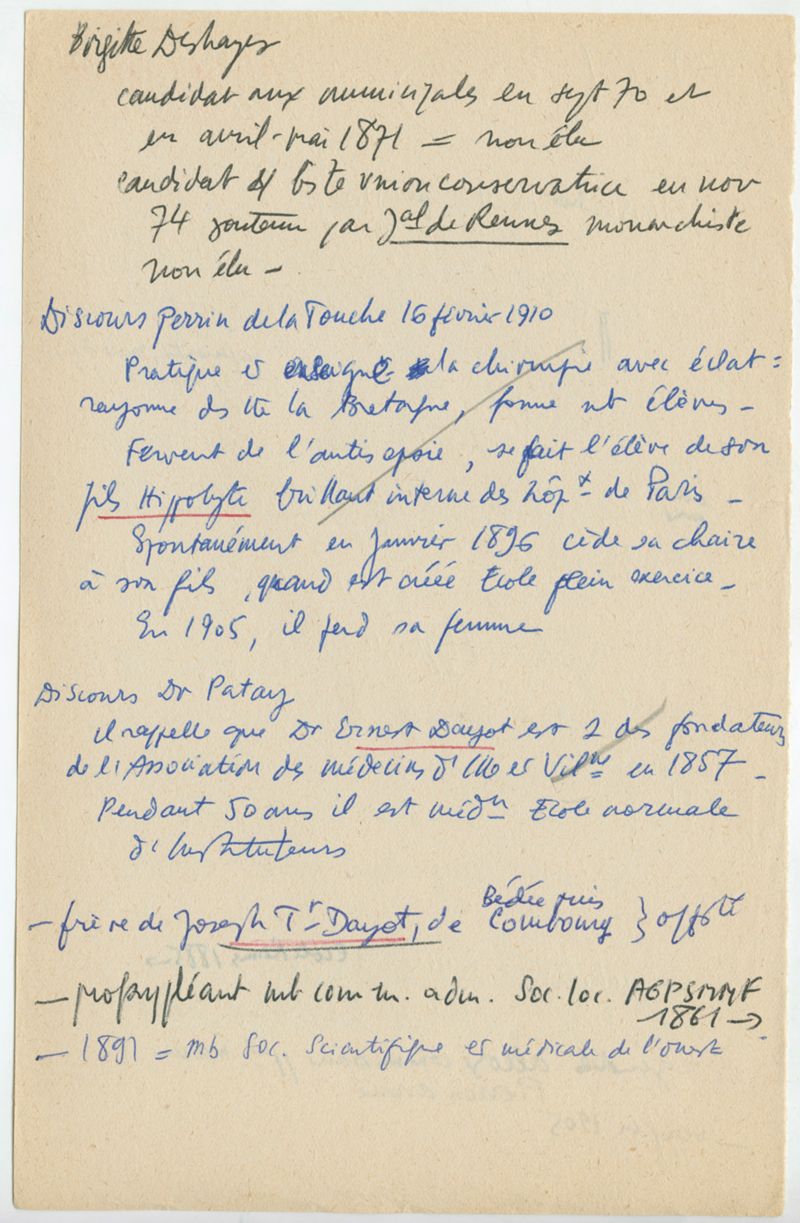 Brigitte Deshayes
candidat aux municipales en sept 70 et
en avril-mai 1871 = non élu
candidat liste union conservatrice en nov
74 soutenu par Jal de Rennes monarchiste
non élu -
Discours Perrin de la Touche 16 février 1910
Pratique et enseigne la chirurgie avec éclat :
rayonne ds tte la Bretagne, forme nb élèves -
Fervent de l'antisepsie, se fait l'élève de son
fils Hippolyte brillant interne des hôpx de Paris -
Spontanément en janvier 1896 cède sa chaire
à son fils, quand est créée Ecole plein exercice -
En 1905, il perd sa femme
Discours Dr Patay
il rappelle que Dr Ernest Dayot est 1 des fondateurs
de l'Association des médecins d'Ille et Vilne en 1857 -
Pendant 50 ans il est médn Ecole normale
d'Instituteurs
Bédée puis
- frère de Joseph Tr Dayot, de Combourg }
- mb comm. adm. Soc. loc. AGPSMMF
1861 →
- 1891 = mb Soc. Scientifique et médicale de l'ouest